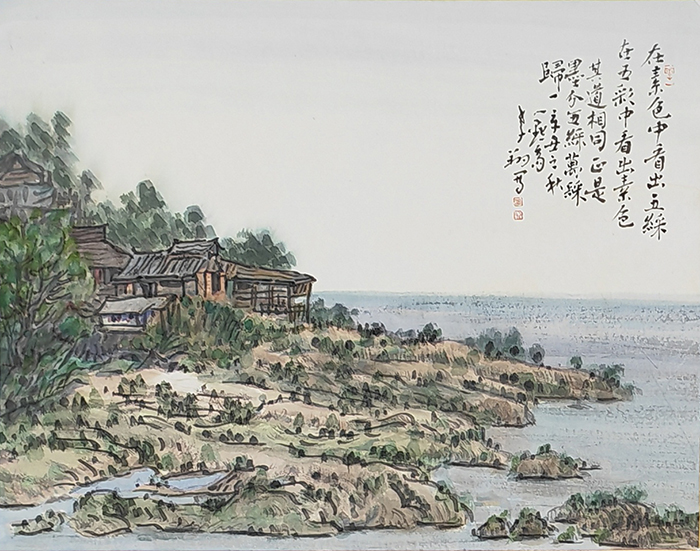 在素色中看出五綵
在五彩中看出素色
其道相同正是
墨分五綵萬綵
歸一辛丑之秋
李翔寫